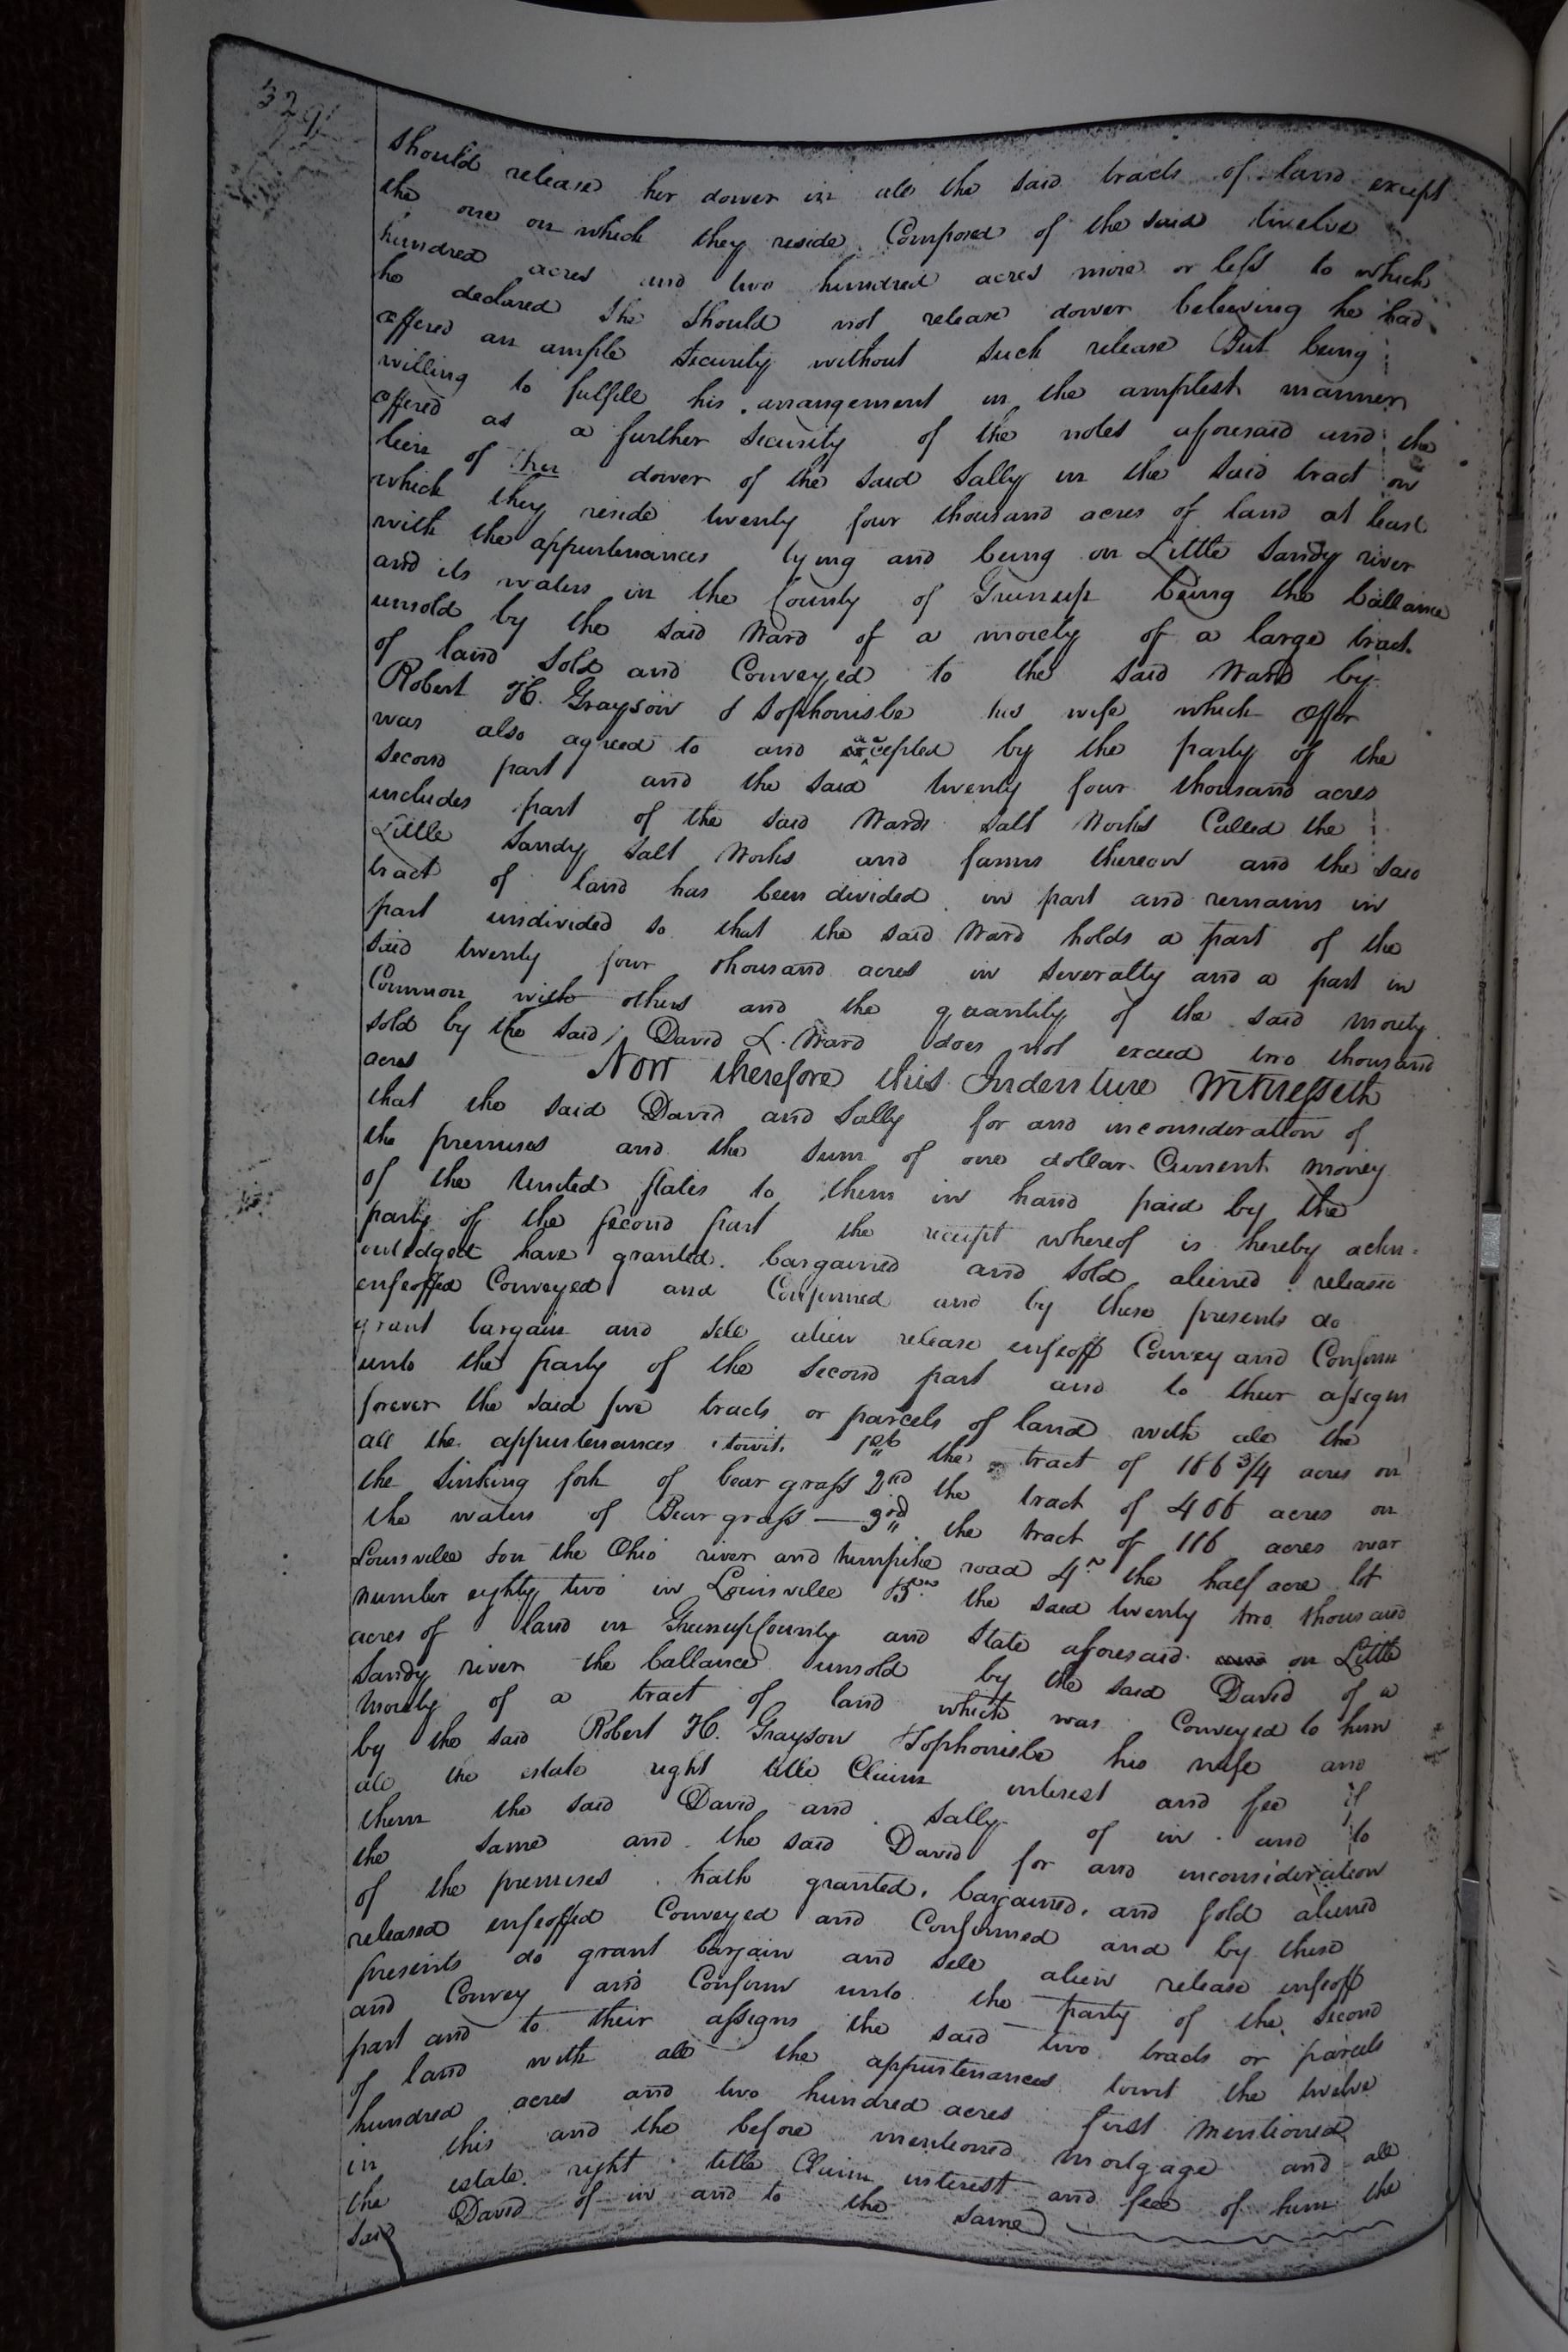 329
should release her dower in all the said tracts of land except
the one on which they reside Composed of the said twelve
hundred acres and two hundred acres more or less to which
he declared She Should not release dower beleeving he had
offered an ample Security without such release But being
willing to fulfill his arrangement in the amplest manner
offered as a further Security of the notes aforesaid and the
lien of the dower of the said Sally in the said tract on
which they reside twenty four thousand acres of land at least
with the appurtenances lying and being on Little Sandy river
and its waters in the County of Greenup being the ballance
unsold by the said Ward of a moiety of a large tract
of land Sold and Conveyed to the said Ward by
Robert H. Grayson & Sophonisbe his wife which offer
was also agreed to and accepted by the party of the
Second part and the said twenty four thousand acres
includes part of the said Wards Salt Works Called the
Little Sandy Salt Works and farms thereon and the said
tract of land has been divided in part and remains in
part undivided so that the said Ward holds a part of the
said twenty four thousand acres in severalty and a part in
Common with others and the quantity of the said moiety
sold by the said David L. Ward does not exceed two thousand
acres Now therefore this Indenture Witnesseth
that the said David and Sally for and inconsideration of
the premises and the sum of one dollar Current money
of the United States to them in hand paid by the
party of the second part the receipt whereof is hereby ackn-
owledged have granted bargained and Sold aliened released
enfeoffed Conveyed and Confirmed and by these presents do
grant bargain and sell alien release enfeoff Convey and Confirm
unto the party of the second part and to their assigns
forever the said five tracts or parcels of land with all the
all the appurtenances towit. 1st the tract of 186 3/4 acres on
the Sinking fork of bear grass 2nd the tract of 408 acres on
the waters of Bear grass — 3rd the tract of 116 acres near
Louisville on the Ohio river and turnpike road 4th the half acre lot
number eighty two in Louisville 5th the said twenty two thousand
acres of land in Greenup County and State aforesaid on Little
Sandy river the ballance unsold by the said David of a
moiety of a tract of land which was Conveyed to him
by the said Robert H. Grayson & Sophonisbe his wife and
all the estate right title Claim interest and fee of
them the said David and Sally of in and to
the same and the said David for and inconsideration
of the premises hath granted, bargained, and sold aliened
released enfeoffed Conveyed and Confirmed and by these
presents do grant bargain and sell alien release enfeoff
and Convey and Confirm unto the party of the second
part and to their assigns the said two tracts or parcels
of land with all the appurtenances towit the twelve
hundred acres and two hundred acres first mentioned
in this and the before mentioned mortgage and all
the estate right title Claim interest and fee of him the
said David of in and to the same